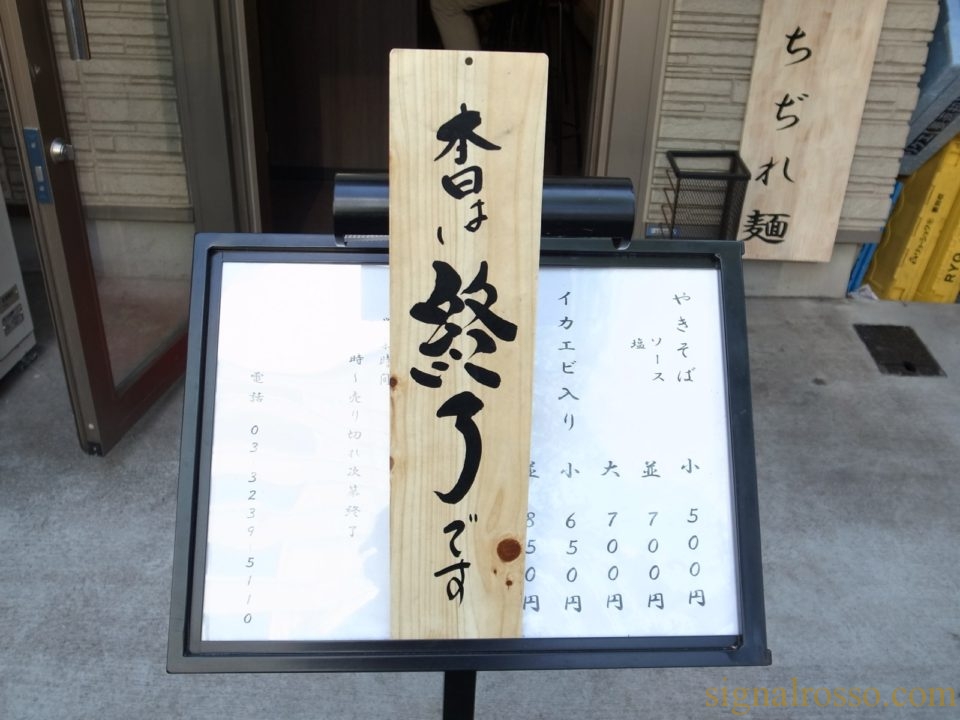 ちぢれ麺
本日は終了です
やきそば
ソース
塩
小 500円
並 700円
大 700円
イカエビ入り
小 650円
並 850円
時間
時～売り切れ次第終了
電話 03 3239 5110
RYO
signalrosso.com